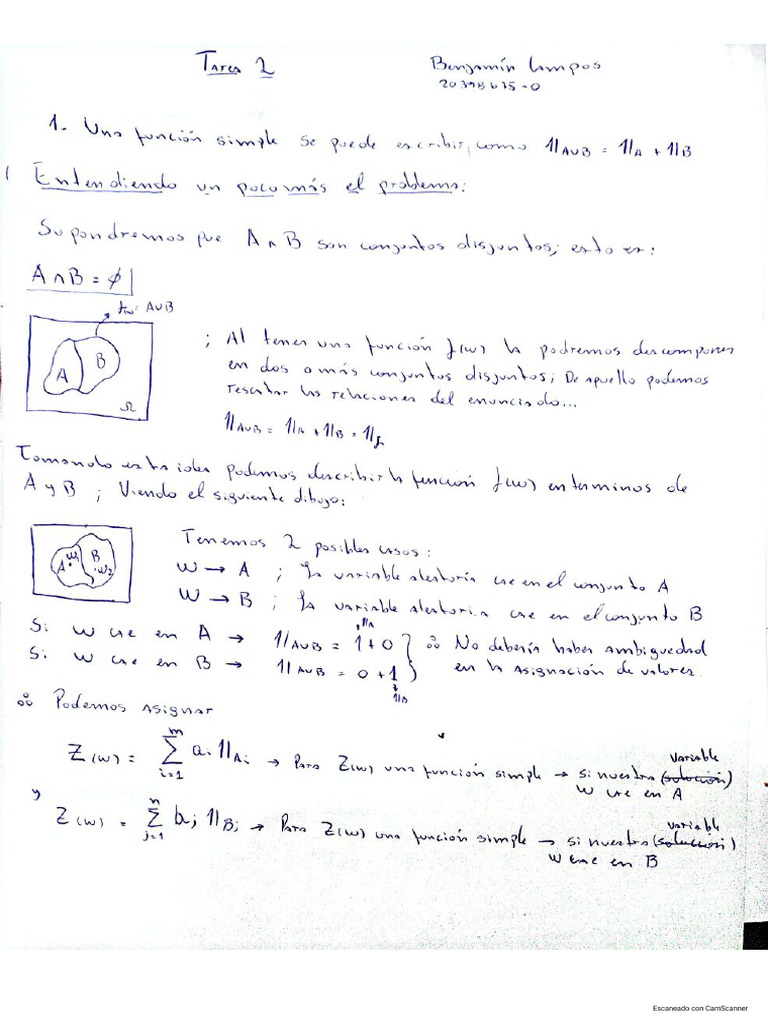 Tarea 2
Benjamín Campos
20398675-0
1. Una función simple se puede escribir, como 𝟙A∪B = 𝟙A + 𝟙B
Entendiendo un poco más el problema:
Supondremos que A ∩ B son conjuntos disjuntos; esto es:
A ∩ B = ∅
: A∪B
A B Ω
; Al tener una función f(w) la podremos descomponer
en dos o más conjuntos disjuntos; De aquello podemos
rescatar las relaciones del enunciado...
𝟙A∪B = 𝟙A + 𝟙B = 𝟙f
Tomando esta idea podemos describir la función f(w) en terminos de
A y B ; Viendo el siguiente dibujo:
A w1 B w2
Tenemos 2 posibles casos:
W → A ; La variable aleatoria cae en el conjunto A
W → B ; La variable aleatoria cae en el conjunto B
Si W cae en A → 𝟙A∪B = 1 + 0 } ∴ No debería haber ambiguedad
𝟙A
Si W cae en B → 𝟙A∪B = 0 + 1 } en la asignación de valores.
𝟙B
∴ Podemos asignar
Z(w) = ∑ i=1 m ai 𝟙Ai → Para Z(w) una función simple → si nuestra (solución) variable
W cae en A
y
Z(w) = ∑ j=1 n bj 𝟙Bj → Para Z(w) una función simple → si nuestra (solución) variable
W cae en B
Escaneado con CamScanner